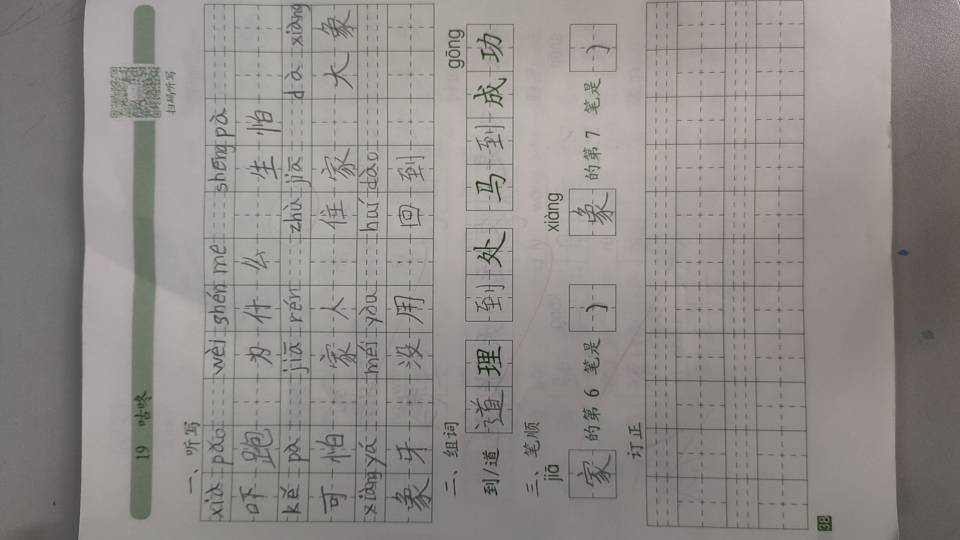 19 咕咚
扫码听写
一、听写
xià pǎo wèi shén me shēng pà
吓跑 为什么 生怕
kě pà jiā rén zhù jiā dà xiàng
可怕 家人 住家 大象
xiàng yá méi yòu huí dào
象牙 没用 回到
二、组词
gōng
到/道 道理 到处 马到成功
三、笔顺
jiā xiàng
家 的第 6 笔是 ㇁ 象 的第 7 笔是 ㇁
订正
38